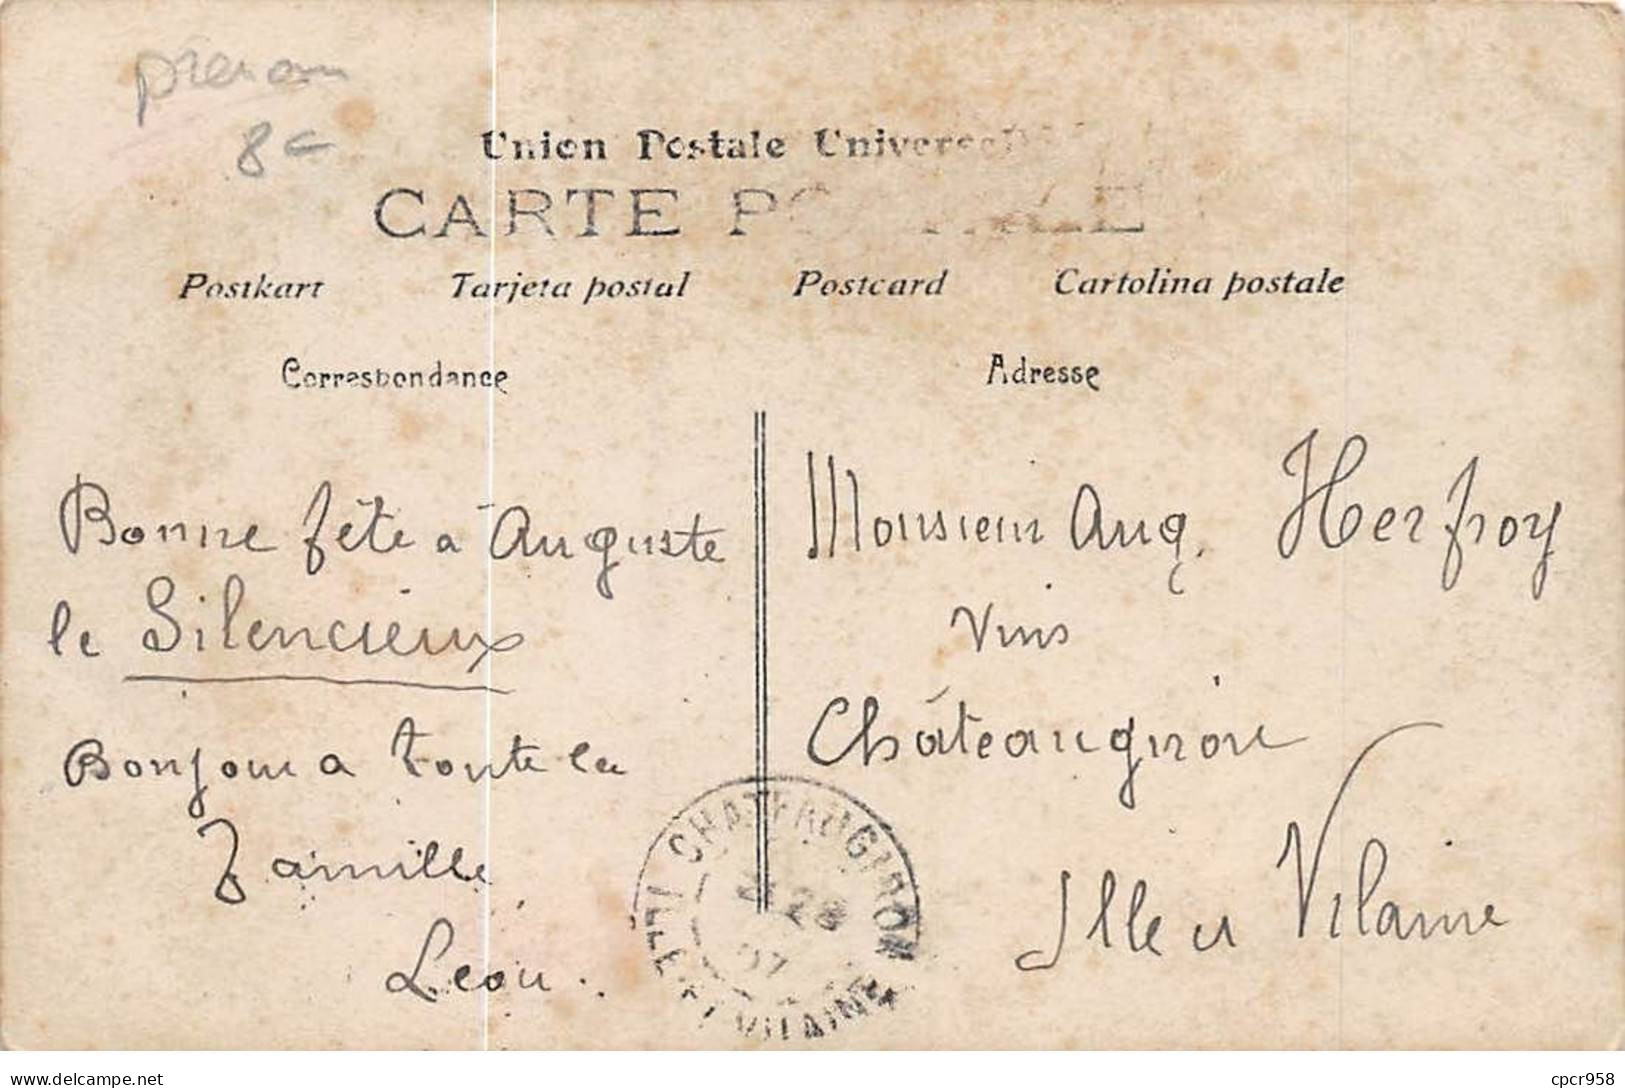 prenom
8€
Union Postale Universelle
CARTE POSTALE
Postkart Tarjeta postal Postcard Cartolina postale
Correspondance
Adresse
Bonne fête à Auguste
le Silencieux
Bonjour a toute la
famille
Léon.
Monsieur Aug. Herfroy
Vins
Châteaugiron
Ille et Vilaine
CHATEAUGIRON
28
07
ILLE-ET-VILAINE
delcampe.net
cpcr958